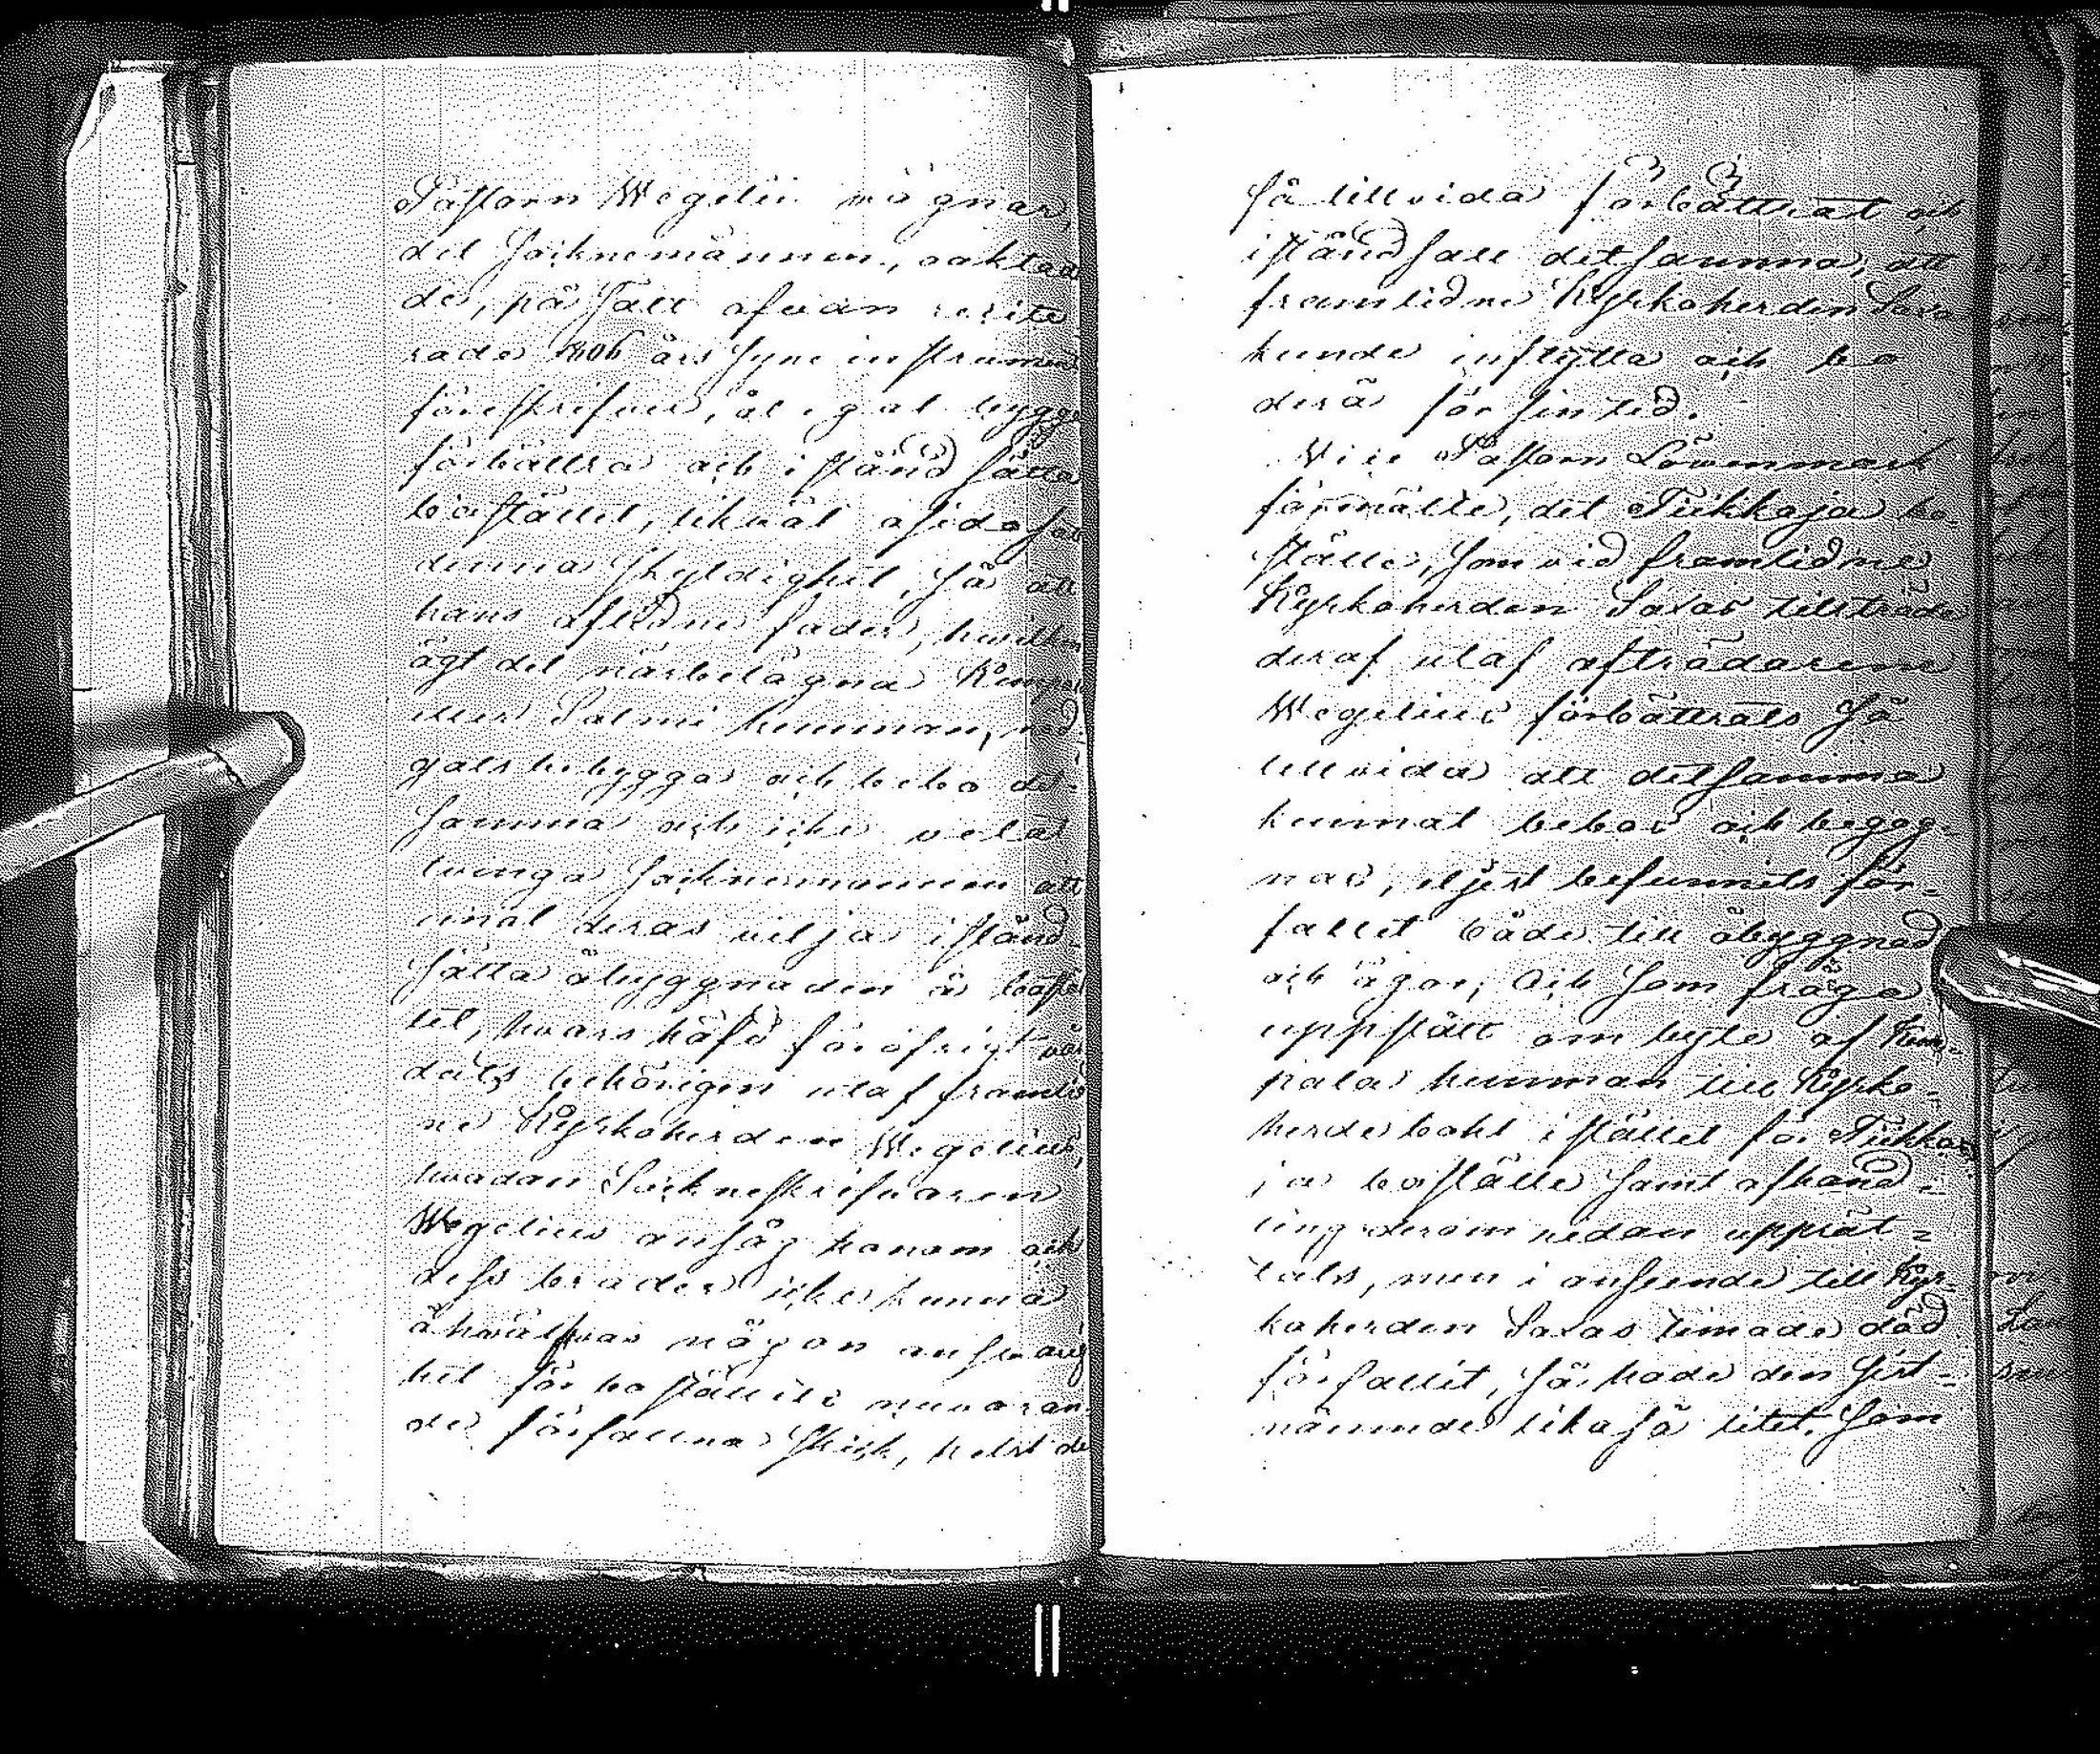 Pastorn Wegelii vägnar,
det Socknemännen, oaktad
de, på sätt ofvan recite
rade 1806 års Syne instrument
föreskrifver, ålegat bygga
förbättra och i stånd sätta
bostället, likväl åsidosatt
denna skyldighet, så att
hans aflidne fader, hvilken
ägt det närbelägna Kempa
eller Salmi hemman, nöd-
gats bebygga och bebo det-
samma och icke velat
tvinga Socknemännen att
emot deras vilja i stånd-
sätta åbyggnaden å bostäl
let, hvars häfd för öfrigt vår
dats behörigen utaf framlid
ne Kyrkoherden Wegelius,
hvadan Sockneskrifvaren
Wegelius ansåg honom och
dess broder icke kunna
åhvälfvas någon ansvarig
het för boställets nuvaran-
de förfallna skick, helst de
så tillvida förbättrat och
iståndsatt detsamma, att
framlidne Kyrkoherden Saxa
kunde inflytta och bo
derå för sin tid.
Vice Pastorn Lövenmark
förmälte, det Tiikkaja bo-
ställe, som vid framlidne
Kyrkoherden Saxas tillträde
deraf utaf afträdaren
Wegelius förbättrats så
tillvida att detsamma
kunnat bebos och begag-
nas, eljest befunnits för-
fallet både till åbyggnad
och ägor; Och som fråga
uppstått om byte af Kem-
pala hemman till Kyrko-
herdebohl i stället för Tiikka-
ja boställe samt afhand-
ling derom redan upprät-
tats, men i anseende till Kyr-
koherden Saxas timade död
förfallit, så hade den sist-
nämnde lika så litet, som